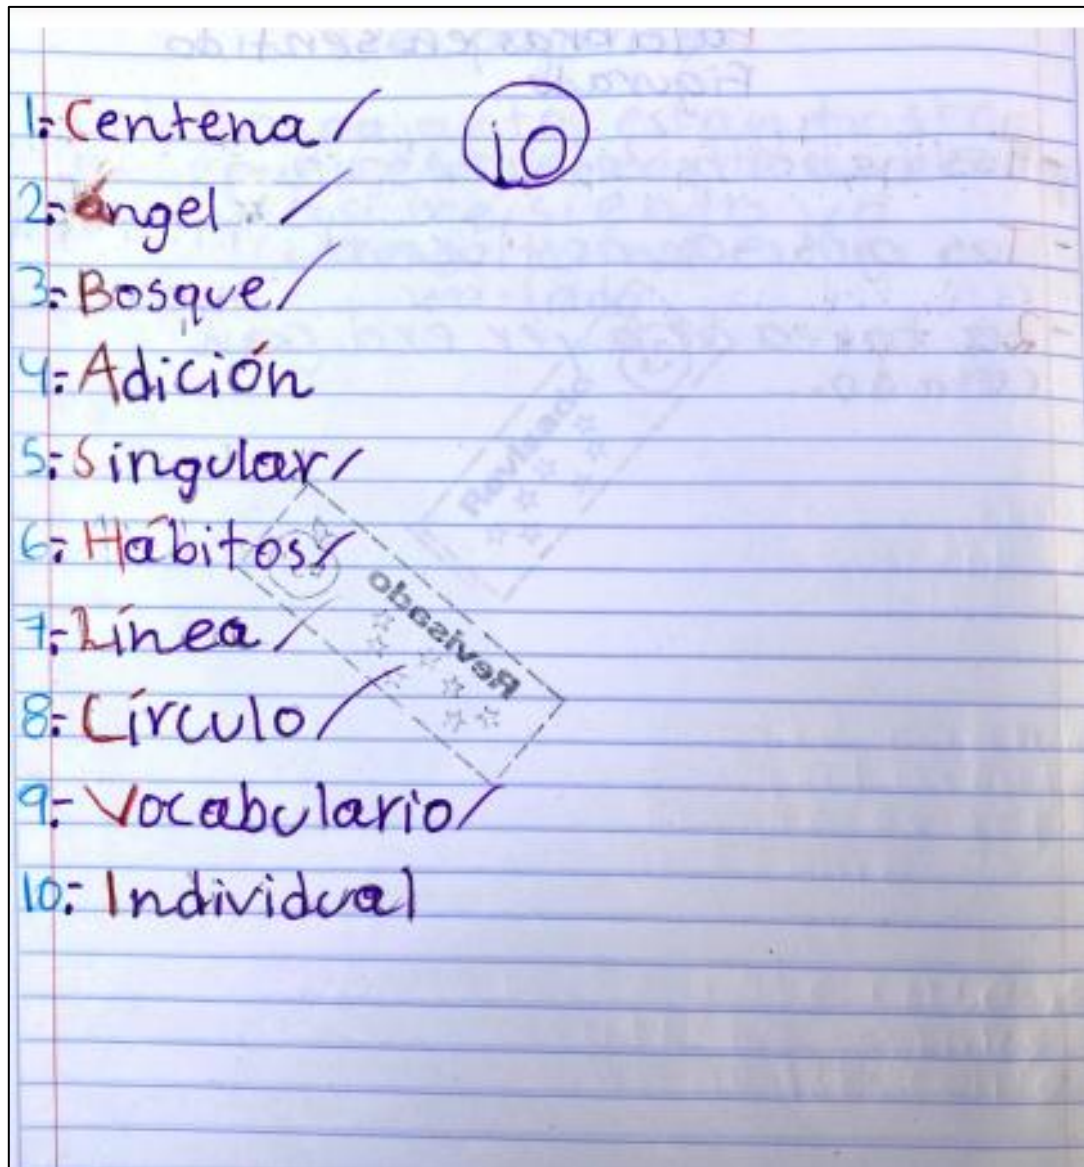 1:- Centena/
10
2:- ángel /
3:- Bosque/
4:- Adición
5:- Singular/
6:- Hábitos/
7:- Línea/
8:- Círculo/
9:- Vocabulario/
10:- Individual
Revisado
Revisado